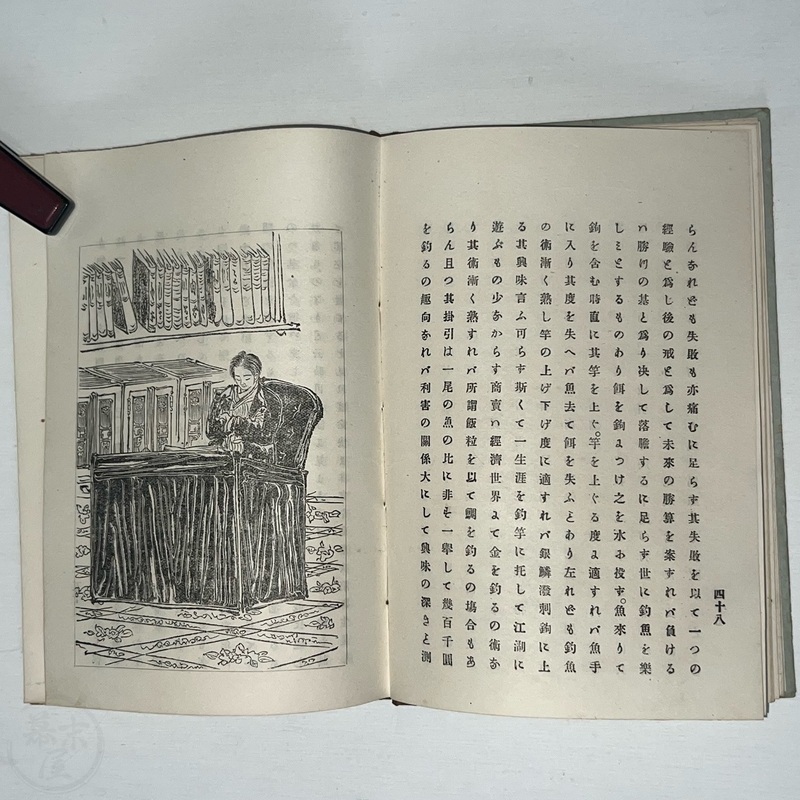 四十八
らんなれども失敗も亦痛むに足らず其失敗を以て一つの
經驗と爲し後の戒と爲して未來の勝算を案ずれバ負ける
ハ勝けの基と爲り决して落膽するに足らず世に釣魚を樂
しミとするものあり餌を鉤につけ之を氷お投ず。魚來りて
鉤を含む時直に其竿を上ぐ。竿を上ぐる度に適すれバ魚手
に入り其度を失へバ魚去て餌を失ふとあり左れども釣魚
の術漸く熟し竿の上げ下げ度に適すれバ銀鱗潑刺鉤に上
る其興味言ふ可らず斯くて一生涯を釣竿に托して江湖に
遊ぶもの少なからす商賣ハ經濟世界にて金を釣るの術な
り其術漸く熟すれバ所謂飯粒を以て鯛を釣るの塲合もあ
らん且つ其掛引は一尾の魚の比に非ず一擧して幾百千圓
を釣るの趣向なれバ利害の關係大にして興味の深きと測